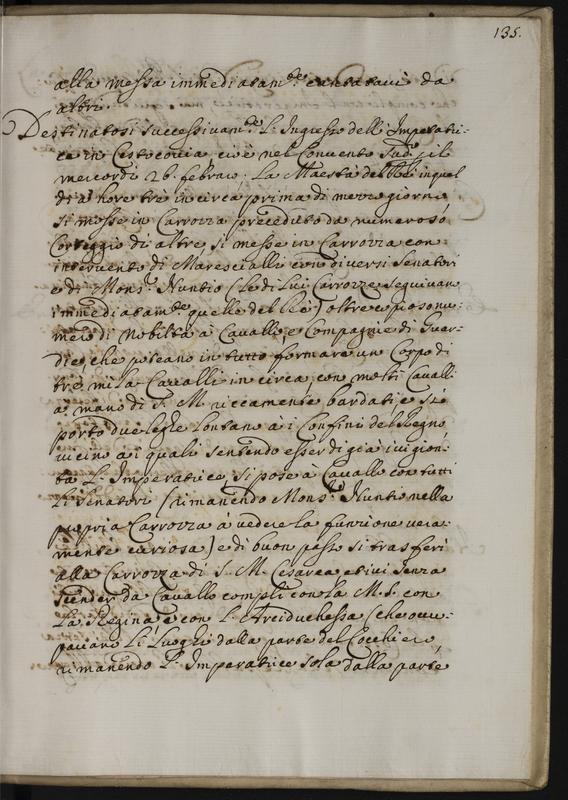 135.
alla messa immediatam.te cantataui da
altri.
Destinatosi successivam.te L'Ingresso dell'Imperatri-
ce in Cestocovia cioè nel Convento Sud.o il
mercordì 26. febraio. La Maestà del Rè in quel
dì a' hore trè in circa prima di mezzo giorno
si mosse in Carrozza preceduto da numeroso
Corteggio di altre, si messe in Carrozza con
intervento di Marescialli con diversi Senatori
e di Mons.r Nuntio (Le di Lui Carrozze seguivano
immediatam.te quelle del Rè) oltre copioso nu-
mero di Nobiltà à Cavallo, e Compagnie di Guar-
die, che poteano in tutto formare un Corpo di
trè mila Cavalli in circa, con molti Cavalli
a mano di S. M. riccamente bardati, e si è
portò due leghe Lontano à i Confini del Regno
vicino à i quali sentendo esser di già ivi gion-
ta L'Imperatrice, si pose à Cavallo con tutti
Li Senatori (rimanendo Mons.r Nuntio nella
propria Carrozza à vedere la funzione vera-
mente curiosa) e di buon passo si trasferì
alla Carrozza di S. M. Cesarea, et ivi senza
scender da Cavallo complì con la M. S. con
La Regina, e con L'Arciduchessa (che occu-
pavano Li Luoghi dalla parte del Cocchiero,
rimanendo L'Imperatrice sola dalla parte